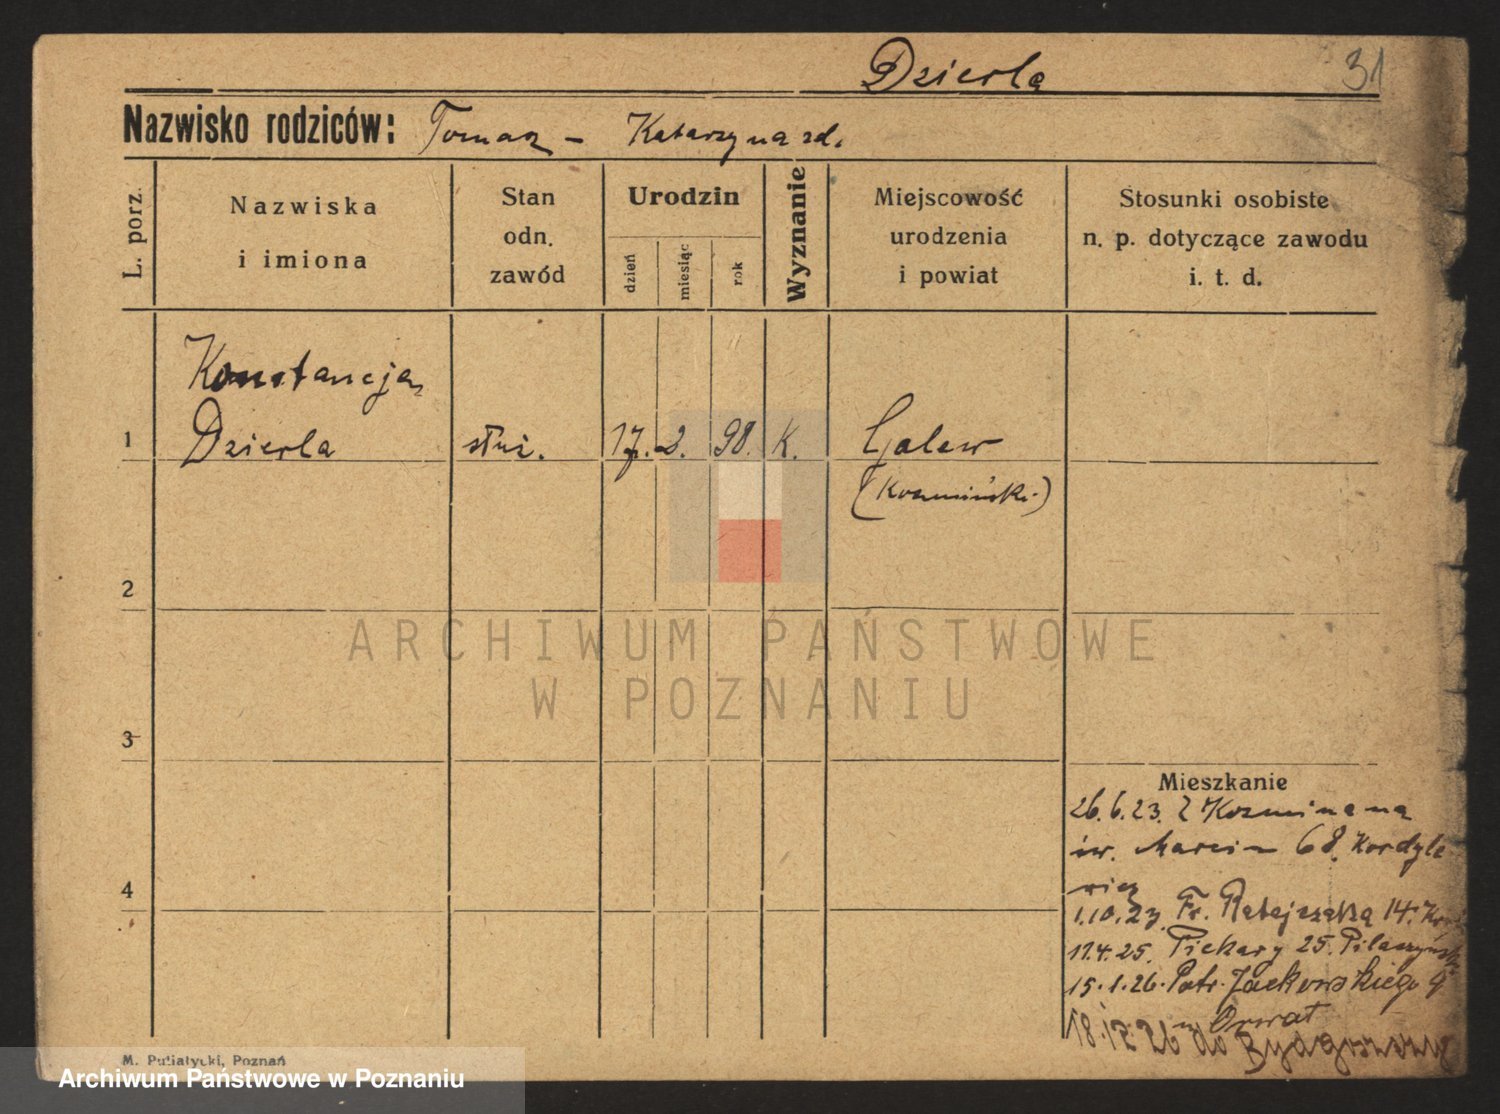 Dzierla
31
Nazwisko rodziców: Tomasz - Katarzyna zd.
L. porz.
Nazwiska
i imiona
Stan
odn.
zawód
Urodzin
dzień
miesiąc
rok
Wyznanie
Miejscowość
urodzenia
i powiat
Stosunki osobiste
n. p. dotyczące zawodu
i. t. d.
Konstancja
1 Dzierla służ. 17. 2. 98. K. Galew
(Koźmiński)
2
3
4
Mieszkanie
26.6.23. Z Kozmina na
św. Marcin 68. Kordyle
wicz
1.10.23. Fr. Ratajczaka 14.
11.4.25. Piekary 25.
15.1.26. Patr. Jackowskiego 9
Orwat
18.12.26 do Bydgoszczy
M. Putiatycki, Poznań
ARCHIWUM PAŃSTWOWE
W POZNANIU
Archiwum Państwowe w Poznaniu